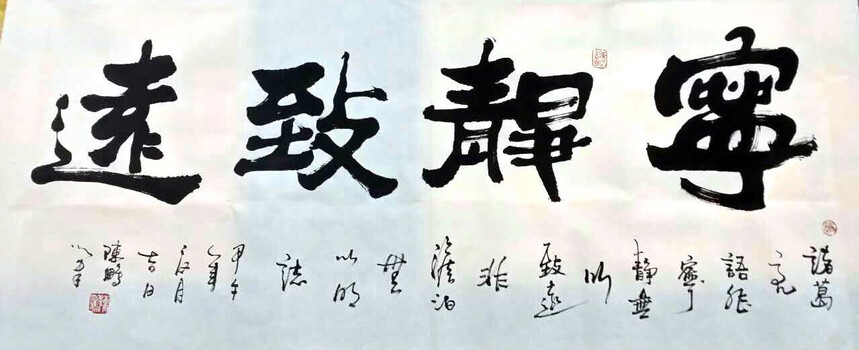 寧靜致遠
諸葛
亮
語非
寧
靜無
以
致遠
非
澹泊
無
以明
誌
甲午
年
月
吉日
陳鵬